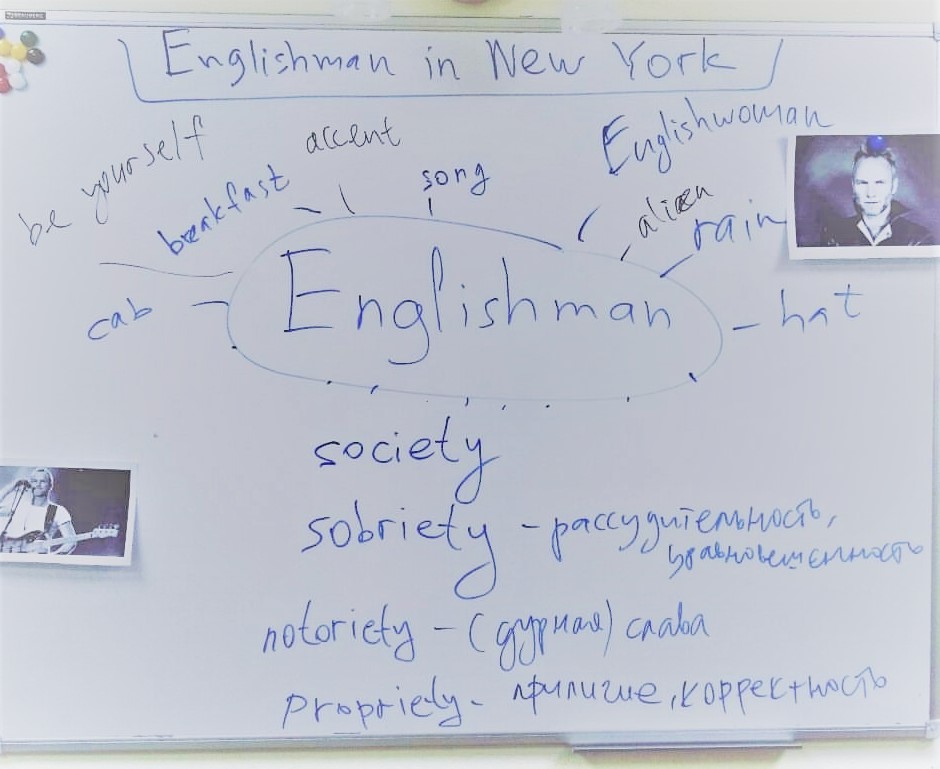 Englishman in New York
be yourself
accent
Englishwoman
breakfast
song
alien
rain
cab
Englishman
hat
society
sobriety - рассудительность,
уравновешенность
notoriety - (дурная) слава
propriety - приличие, корректность